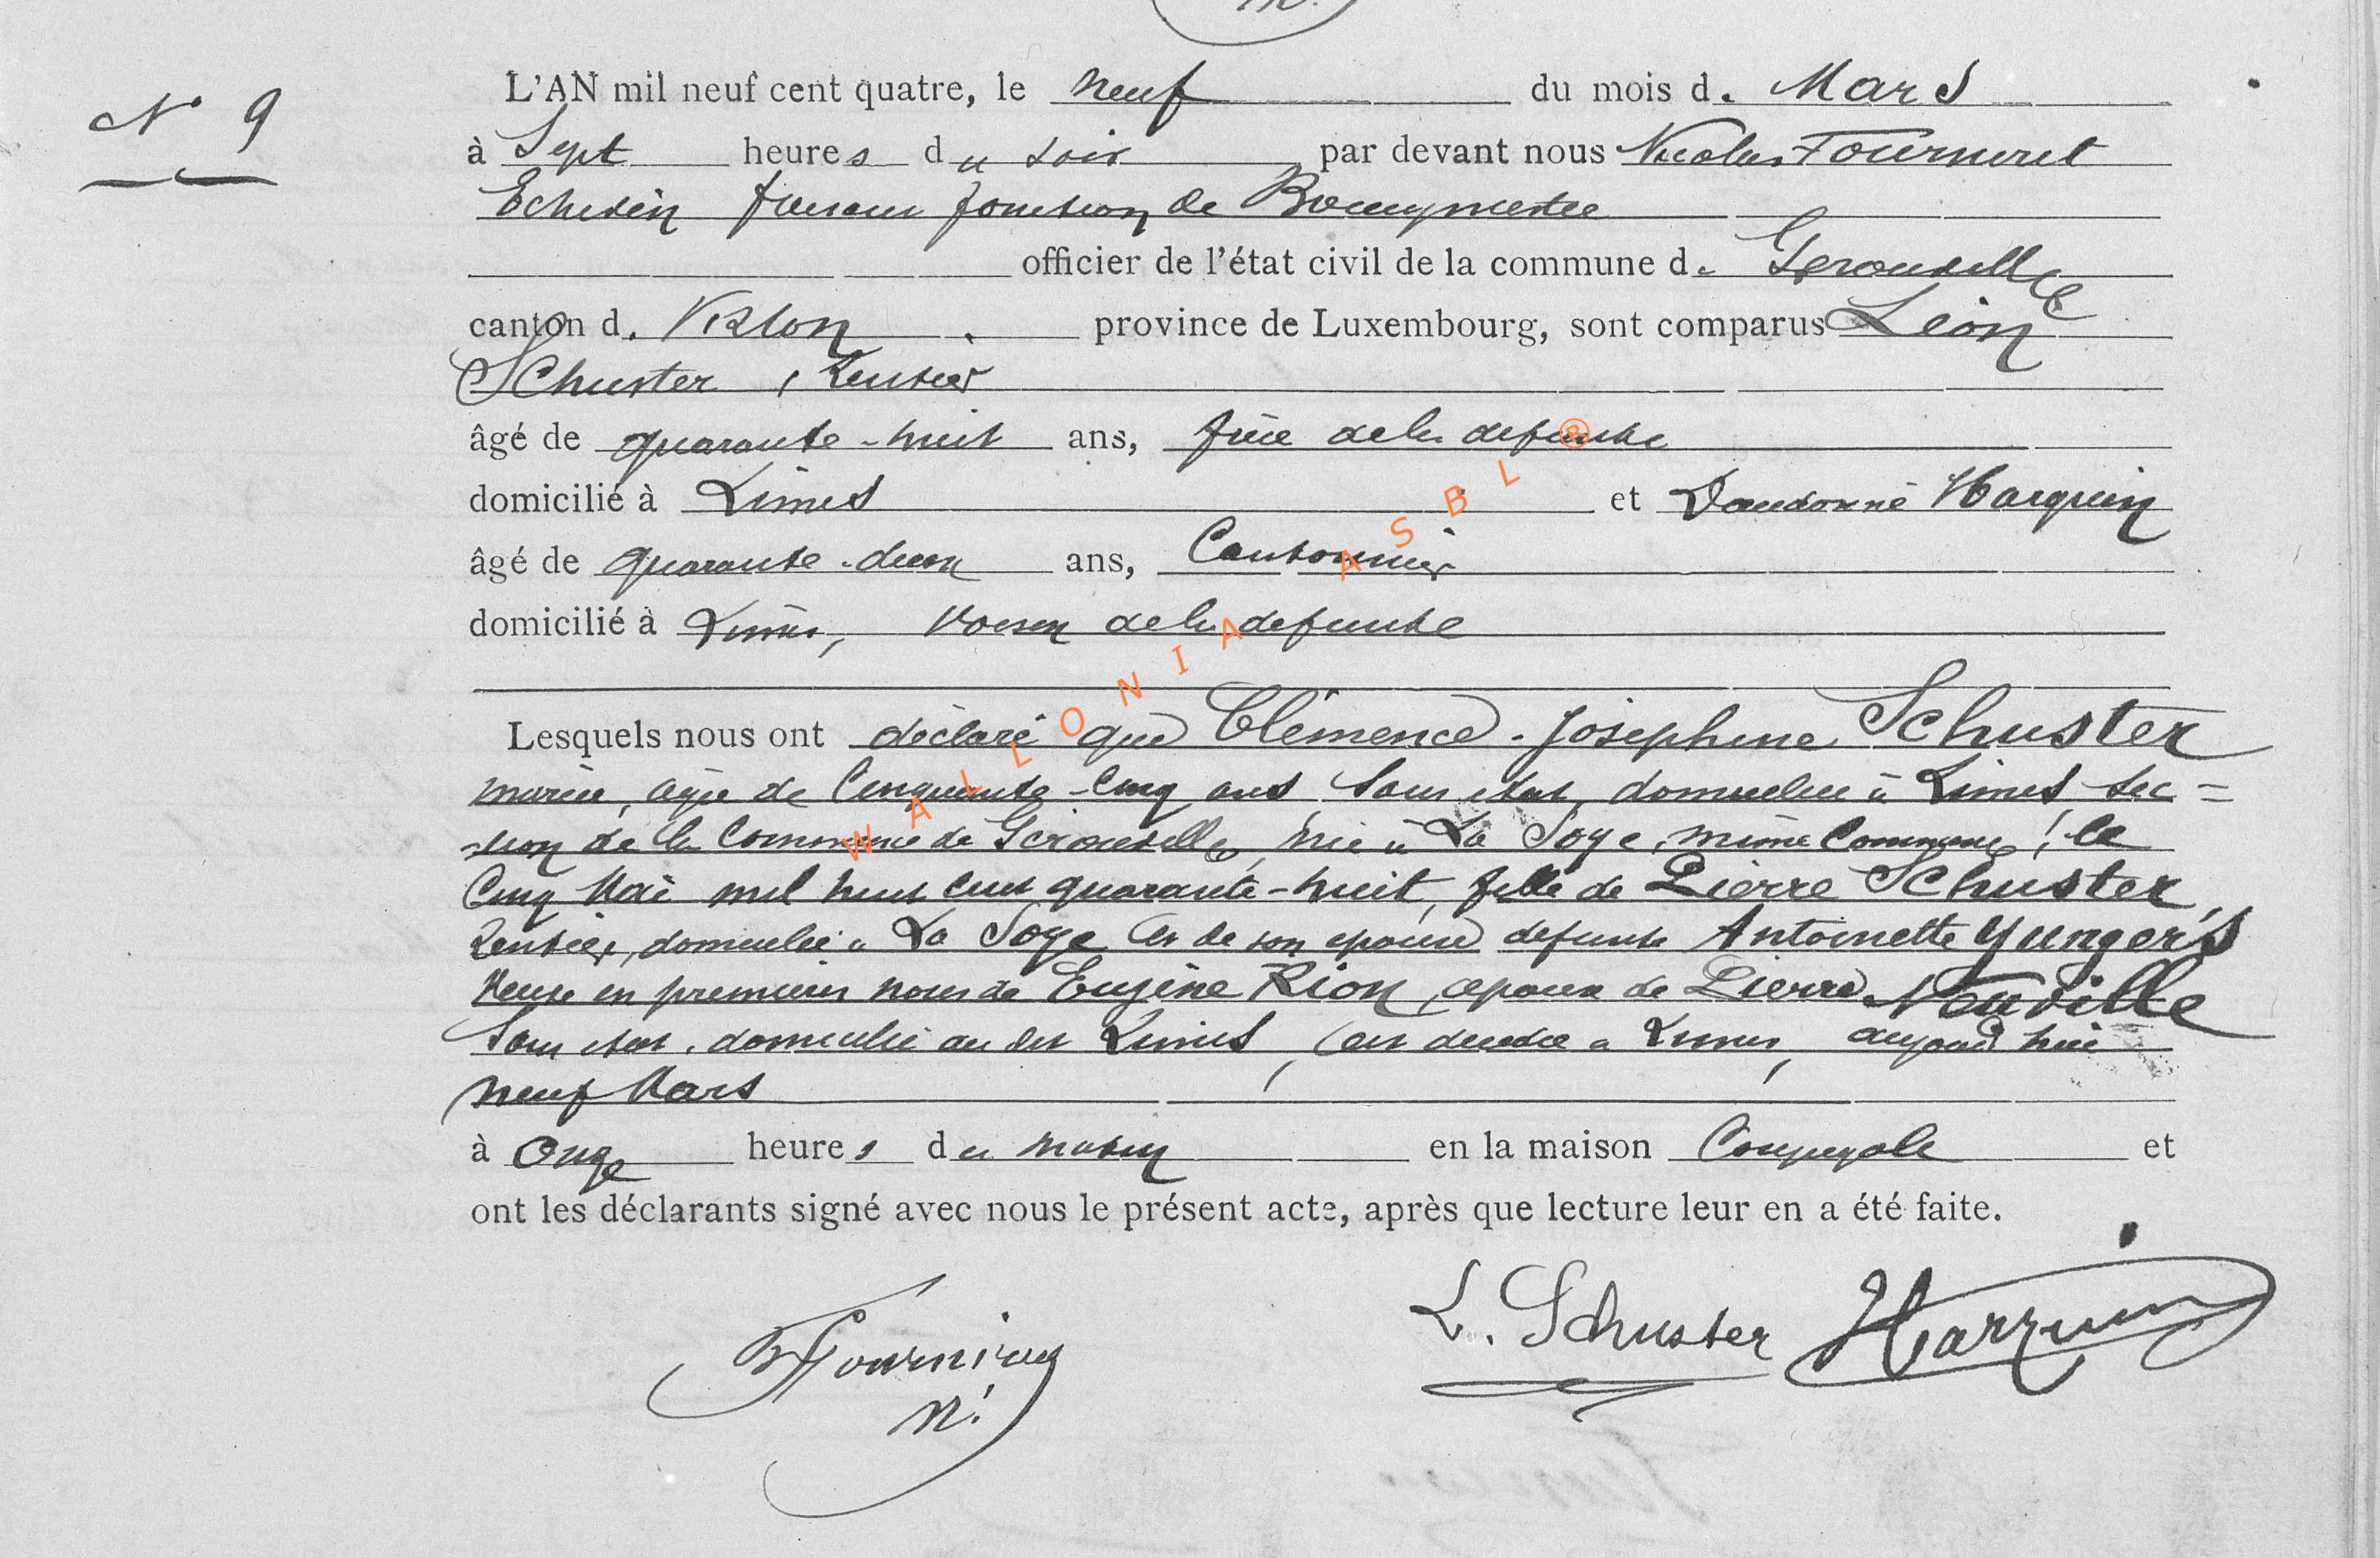 N° 9
L'AN mil neuf cent quatre, le neuf du mois de Mars
à Sept heures du soir par devant nous Nicolas Fourneret
Echevin faisant fonction de Bourgmestre
officier de l'état civil de la commune de Gerouville
canton de Virton province de Luxembourg, sont comparus Léon
Schuster, Rentier
âgé de quarante-huit ans, frère de la defunte
domicilié à Limes et Dieudonné Harquin
âgé de quarante-deux ans, Cantonnier
domicilié à Limes, voisin de la defunte
Lesquels nous ont déclaré que Clémence-Joséphine Schuster
mariée, agée de Cinquante-Cinq ans Sans état, domiciliée à Limes sec=
=tion de la Commune de Gérouville, née à La Soye, même Commune, le
Cinq Mai mil huit cent quarante-huit, fille de Pierre Schuster,
Rentier, domicilié à La Soye et de son épouse defunte Antoinette Yungers
Veuve en premières noces de Eugène Rion, épouse de Pierre Neuville
Sans état, domicilié au dit Limes, est decedée à Limes, aujourd'hui
neuf Mars
à Onze heures du matin en la maison Conjugale et
ont les déclarants signé avec nous le présent acte, après que lecture leur en a été faite.
L. Schuster Harquin
WALLONIA ASBL ®